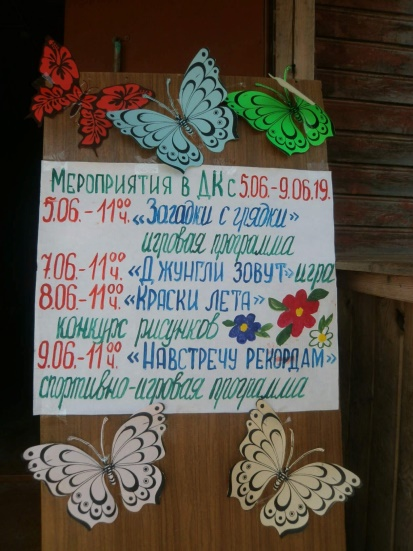 Мероприятия в ДК с 5.06.-9.06.19.
5.06.-11⁰⁰ч. «Загадки с грядки»
игровая программа
7.06.-11⁰⁰ч. «Джунгли зовут» игра
8.06-11⁰⁰ч. «Краски лета»
конкурс рисунков
9.06-11⁰⁰ч. «Навстречу рекордам»
спортивно-игровая программа